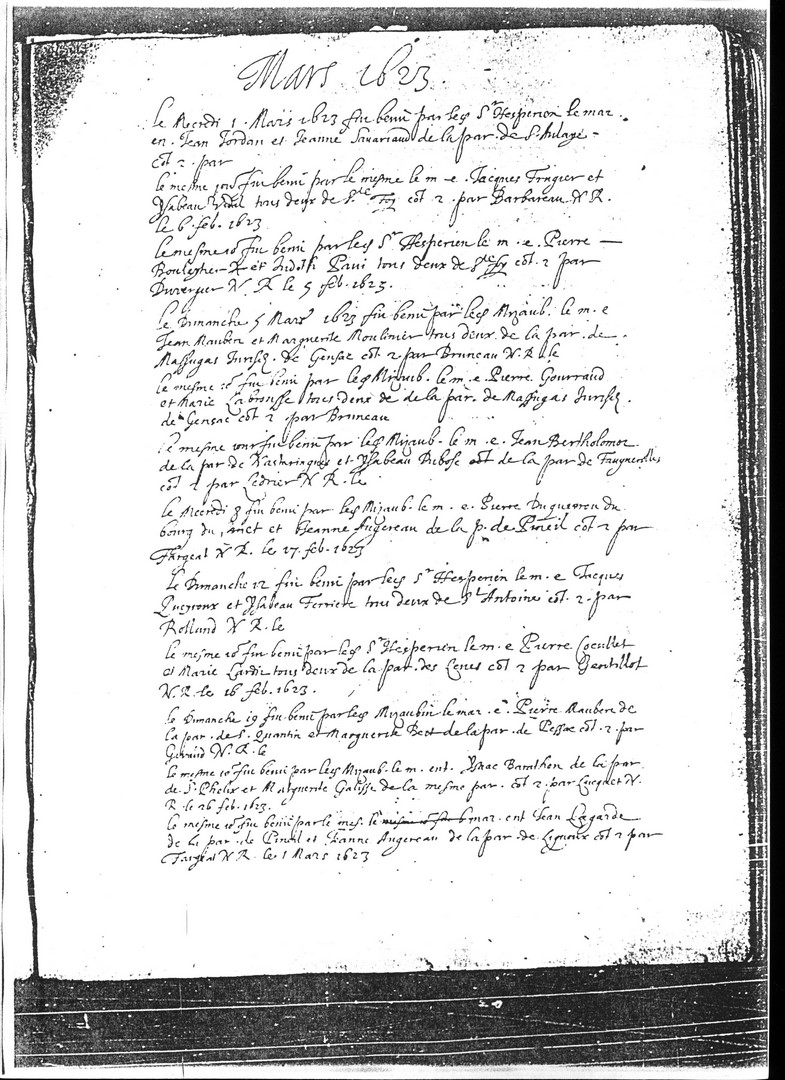 Mars 1623.
le Mecredi 1. Mars 1623 fut beni par les Sr Hesperien le mar.
en. Jean Jordan et Jeanne Sauariaud de la par. de S. Aulaye -
cot 2. par
le mesme jour fut beni par le mesme le m - e. Jacques Frugier et
Ysabeau tous deux de Ste Foy cot 2. par Barbareau N R.
le 6. feb. 1623
le mesme io fut beni par les Sr Hesperien le m. e. Pierre —
et Judith tous deux de Ste foy cot. 2 par
Duverger N. R le 5 feb. 1623.
le Dimanche 5 Mars 1623 fut beni par les Mizaub. le m. e
Jean Maubera et Marguerite Moulinier tous deux de la par. de
Massugas Jurisz. de Gensac cot 2 par Bruneau N. R. le
le mesme io fut beni par les Mizaub. le m. e. Pierre Gourraud
et Marie Labrousse tous deux de de la par. de Massugas Jurisz.
de Gensac cot 2 par Bruneau
le mesme jour fut beni par les Mizaub. le m. e. Jean Bertholomé
de la par de et Ysabeau Dubosc de la par de
cot 2 par Ledrier N R. le
le Mecredi 8 fut beni par les Mizaub. le m. e. Pierre Duqueyron du
bourg du et Jeanne Augereau de la p. de Pineil cot 2 par
Fargeat N R. le 17. feb. 1623
le Dimanche 12 fut beni par les Sr Hesperien le m. e Jacques
Queyroux et Ysabeau Ferriere tous deux de St Antoine cot. 2. par
Rolland N R. le
le mesme io fut beni par les Sr Hesperien le m. e Pierre Coculet
et Marie Lardit tous deux de la par. des Leues cot 2 par Gentillot
N. R. le 16 feb. 1623.
le Dimanche 19 fut beni par les Mizaubin le mar. e. Pierre Maubera de
la par. de S. Quantin et Marguerite Bect de la par. de Pessac cot. 2. par
Guraud N. R. le
le mesme io fut beni par les Mizaub. le m. ent. Ysaac Barathon de la par.
de S. Phelix et Marguerite Galisse de la mesme par. cot 2. par Lucquet N.
R. le 26 feb. 1623.
le mesme io fut beni par le mes. le mar. ent Jean Lagarde
de la par. de Pineil et Jeanne Augereau de la par. de Ligueux cot 2 par
Fargeat N R. le 1 Mars 1623